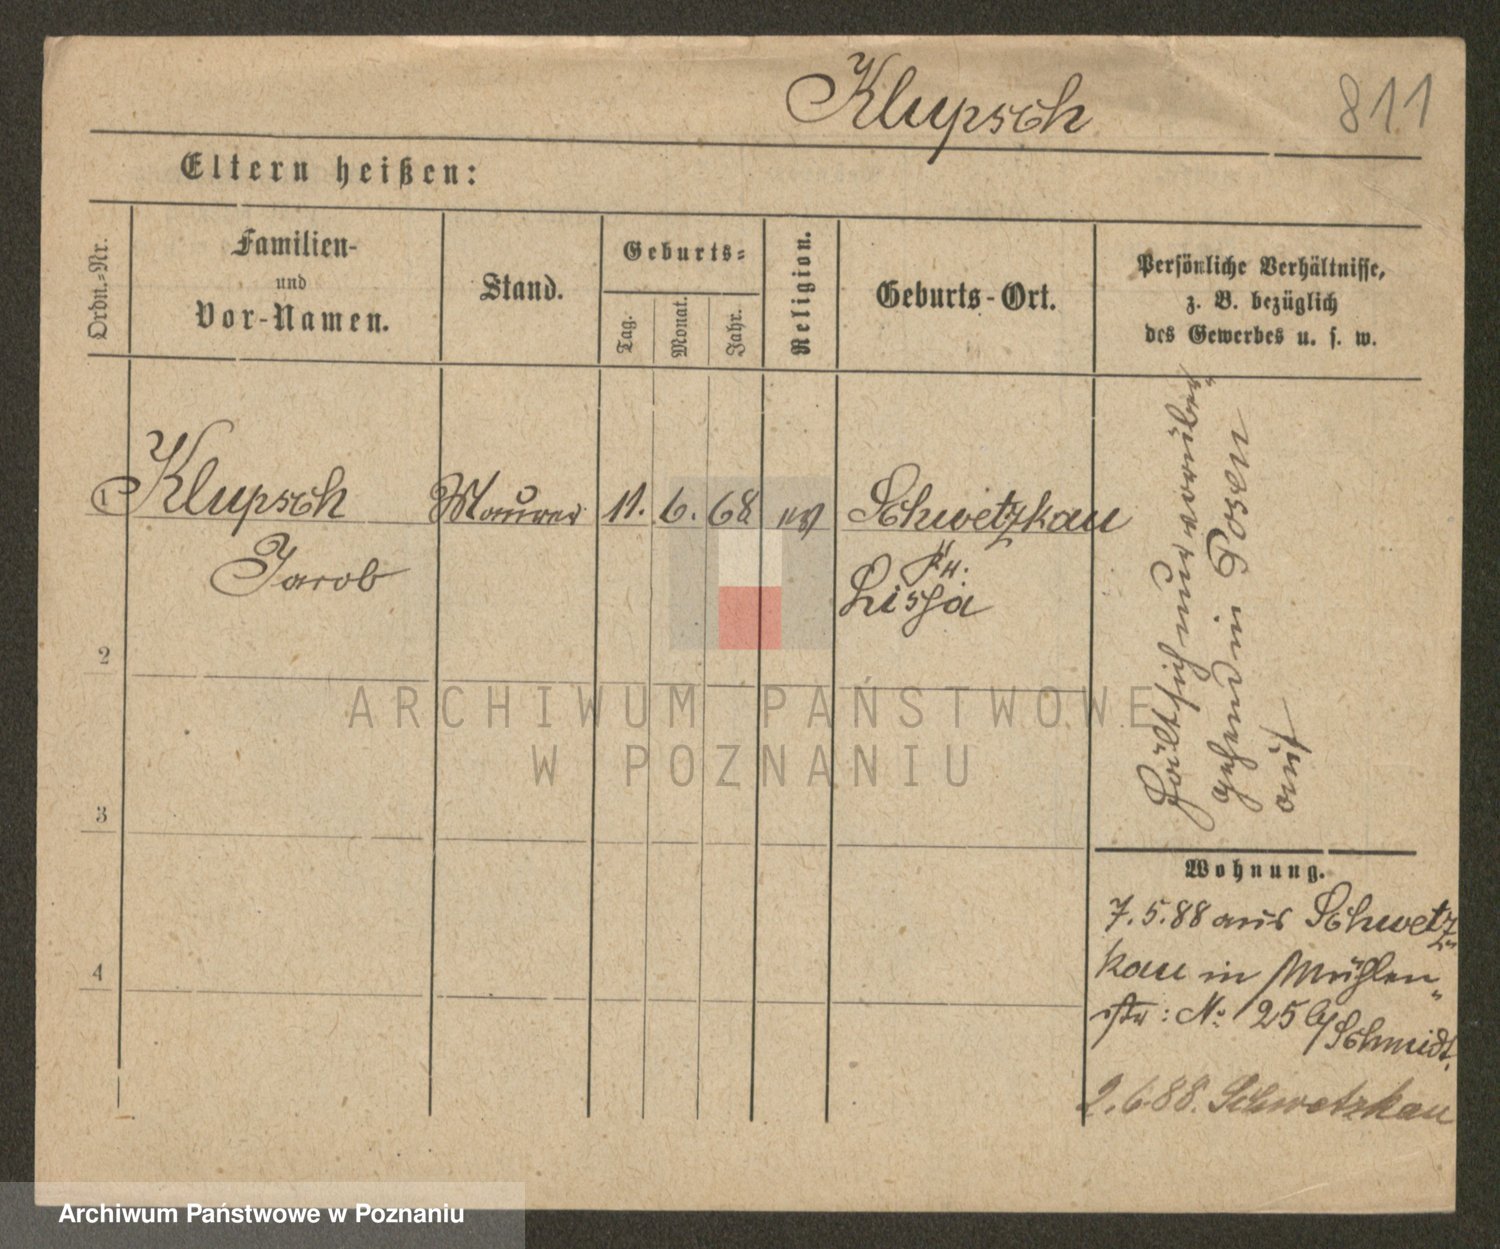 Klupsch
811
Eltern heißen:
Ordn.-Nr.
Familien-
und
Vor-Namen.
Stand.
Geburts-
Tag.
Monat.
Jahr.
Religion.
Geburts-Ort.
Persönliche Verhältnisse,
z. B. bezüglich
des Gewerbes u. s. w.
1 Klupsch Maurer 11. 6. 68 ev Schwetzkau
Jacob
Kr.
Lissa
2
3
4
Hält sich nur vorüber
gehend in Posen
auf
Wohnung.
7.5.88 aus Schwetz
kau in Mühlen
str: No 25 b/Schmidt.
2.6.88. Schwetzkau
ARCHIWUM PAŃSTWOWE
W POZNANIU
Archiwum Państwowe w Poznaniu